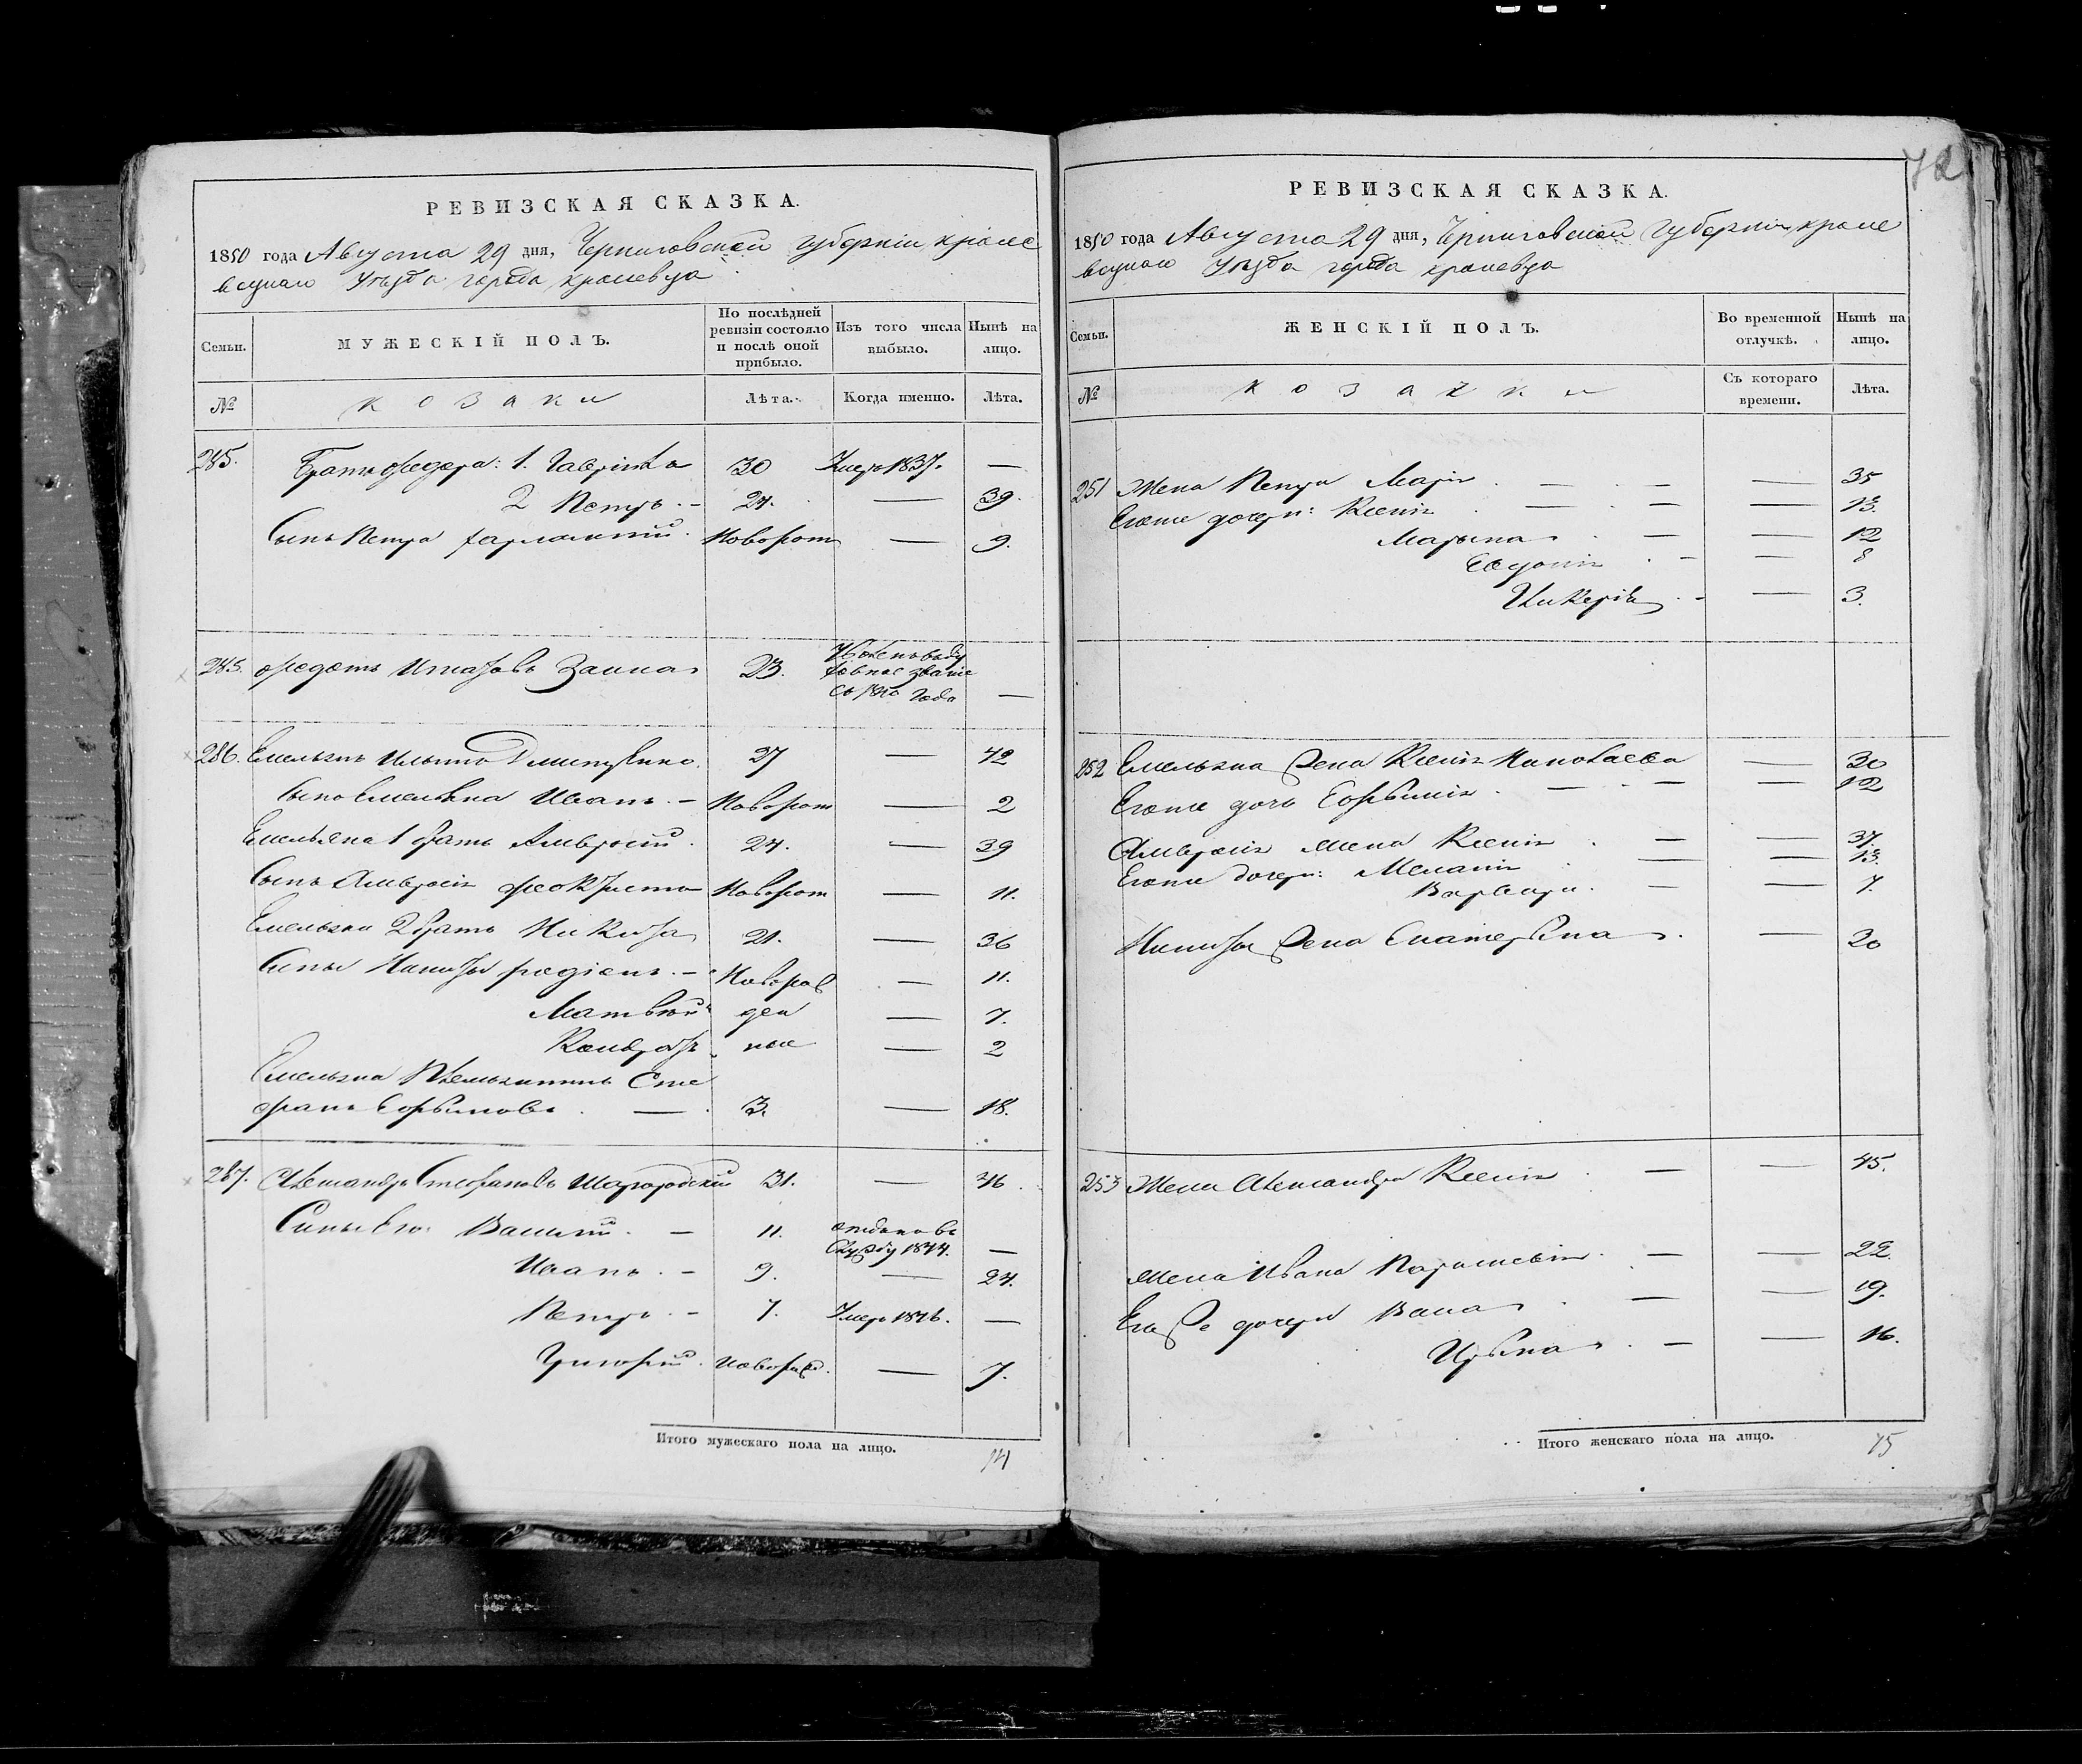 72
РЕВИЗСКАЯ СКАЗКА.
1850 года Августа 29 дня, Черниговской губернии, кроле
вецкаго Уезда города кролевца
Семьи.
МУЖЕСКІЙ ПОЛЪ.
По послѣдней ревизіи состояло и послѣ оной прибыло.
Изъ того числа выбыло.
Нынѣ на лицо.
№
козаки
Лѣта.
Когда именно.
Лѣта.
285. Братъ Федора: 1. Гаврило 30 Умеръ 1837. —
2 Петръ. — 24. — 39.
Сынъ Петра Харлампий. Новорож — 9.
285. Федотъ Заика 23. звание съ года —
286. Емельянъ Ильинъ 27 — 42
Сынъ Емельяна Иванъ. — Новорож — 2
Емельяна 1 братъ Амвросий. 24. — 39
Сынъ Амвросия Феоктистъ Новорож — 11.
Емельяна 2 братъ Никита 21. — 36
Сыны Никиты Родіонъ. — Новорож — 11.
Матвѣй ден — 7.
Кондратъ ные — 2
Емельяна племянникъ Сте
фанъ Ефимовъ. — 3. — 18.
287. Александръ Стефановъ Шагородский 31. — 46.
Сыны Его: Василий. — 11. отданъ въ Службу 1844. —
Иванъ. — 9. — 24.
Петръ. — 7. Умеръ 1846. —
Григорий. новорож. — 7.
Итого мужескаго пола на лицо. 14
РЕВИЗСКАЯ СКАЗКА.
1850 года Августа 29 дня, Черниговской Губернии, кроле
вецкаго Уезда города кролевца
Семьи.
ЖЕНСКІЙ ПОЛЪ.
Во временной отлучкѣ.
Нынѣ на лицо.
№
козачки
Съ котораго времени.
Лѣта.
251 Жена Петра Марія. — — — 35
Егоже дочери: Ксенія. — — — 13.
Марина. — — 12
Евдокія. — — 8
Гликерія. — — 3.
252 Емельяна Жена Ксенія Николаева — 30
Егоже дочь Ефимія. — — — 12
Амвросія жена Ксенія. — — 37.
Егоже дочери: Меланія — — 13.
Варвара. — — 7.
Никиты Жена Екатерина. — 20
253 Жена Александра Ксенія. — — 45.
Жена Ивана Параскевія. — — 22.
Его же дочери Васса. — — 19.
Ирина. — — 16.
Итого женскаго пола на лицо. 15